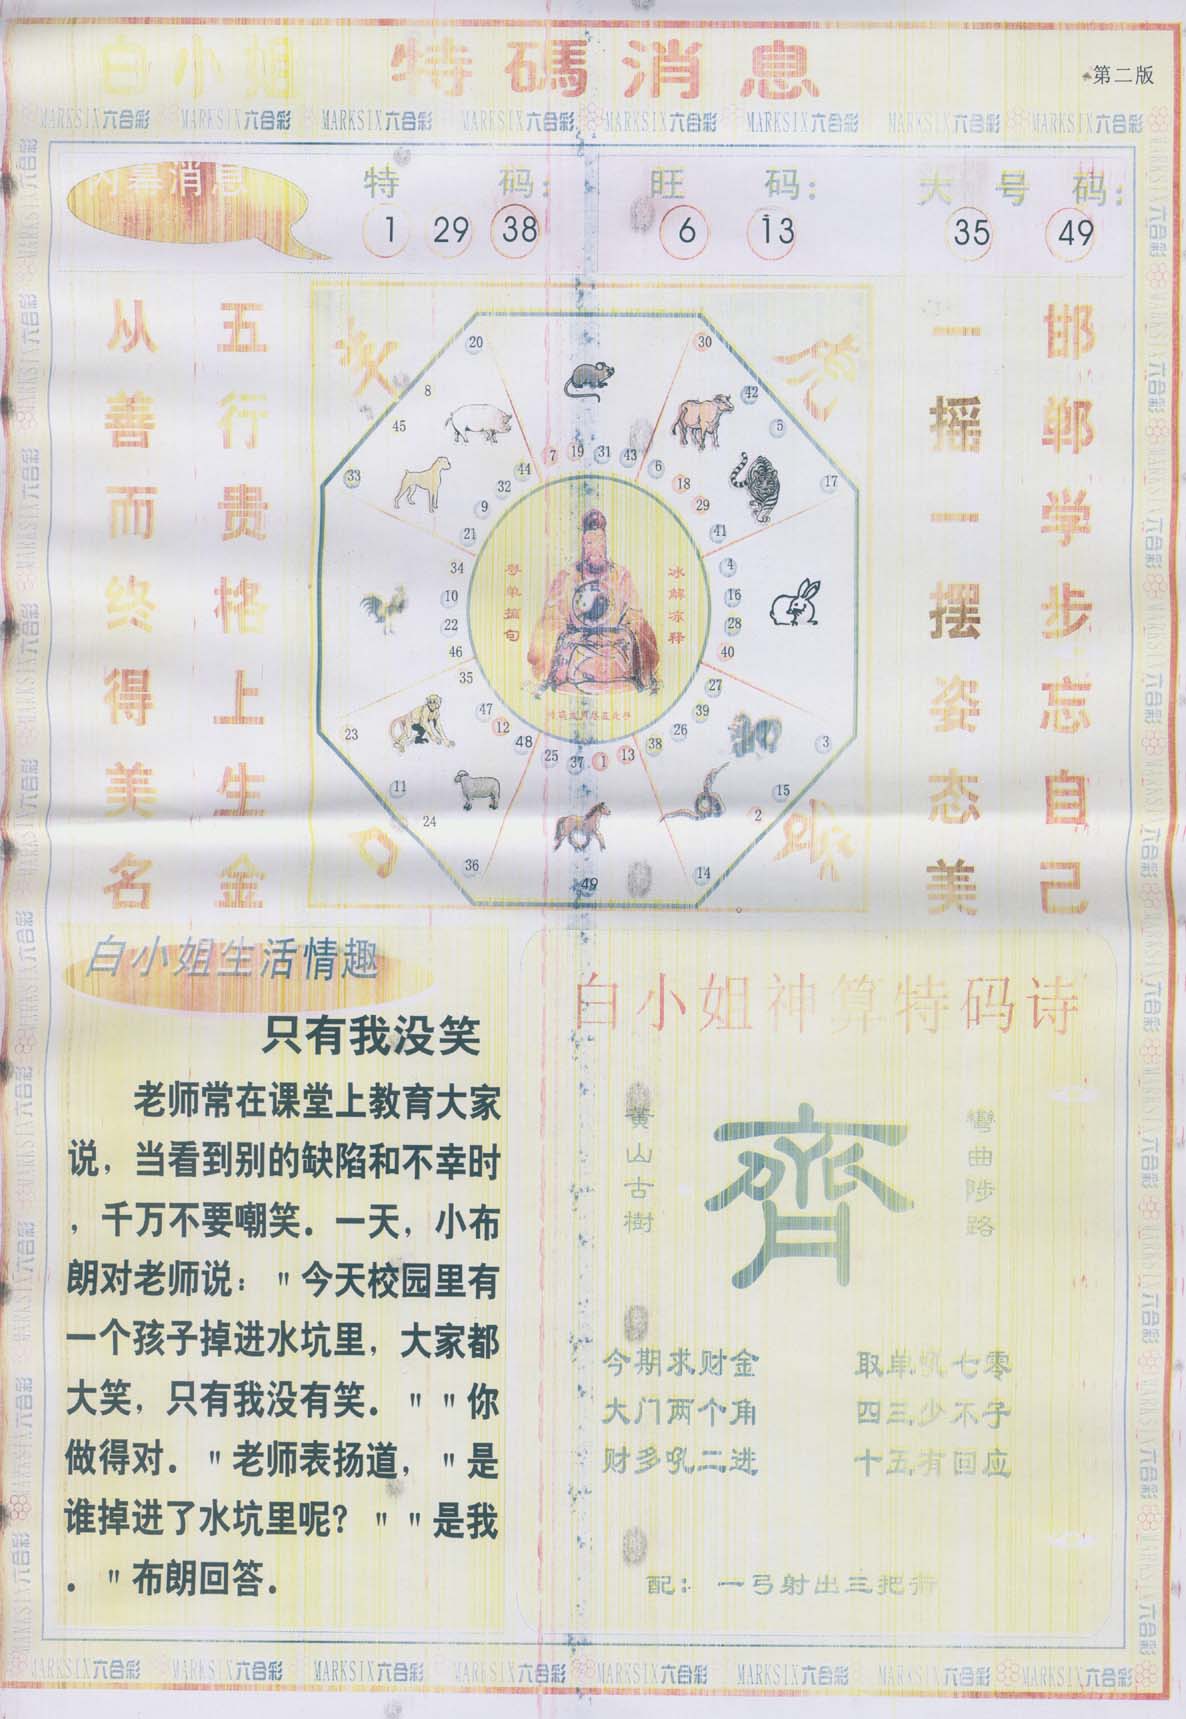 白小姐 特碼消息
第二版
MARKSIX六合彩 MARKSIX六合彩 MARKSIX六合彩 MARKSIX六合彩 MARKSIX六合彩 MARKSIX六合彩 MARKSIX六合彩 MARKSIX六合彩
内幕消息
特 码: 旺 码: 大 号 码:
1 29 38 6 13 35 49
从善而终得美名
五行贵格上生金
一摇一摆姿态美
邯郸学步忘自己
20 30
8 42
45 5
33 17
44 7 19 31 43 6
32 18
9 29
21 41
34 4
10 16
22 28
46 40
35 27
47 39
12 26
48 38
25 37 1 13
23 3
11 15
24 2
36 14
49
冰解冻释
白小姐生活情趣
只有我没笑
老师常在课堂上教育大家
说，当看到别的缺陷和不幸时
，千万不要嘲笑．一天，小布
朗对老师说："今天校园里有
一个孩子掉进水坑里，大家都
大笑，只有我没有笑．""你
做得对．"老师表扬道，"是
谁掉进了水坑里呢？""是我
．"布朗回答．
白小姐神算特码诗
黄山古樹
齊
彎曲陟路
今期求财金 取单吼七零
大门两个角 四三少不子
财多吼二进 十五有回应
配：一弓射出三把
MARKSIX六合彩 MARKSIX六合彩 MARKSIX六合彩 MARKSIX六合彩 MARKSIX六合彩 MARKSIX六合彩 MARKSIX六合彩 MARKSIX六合彩